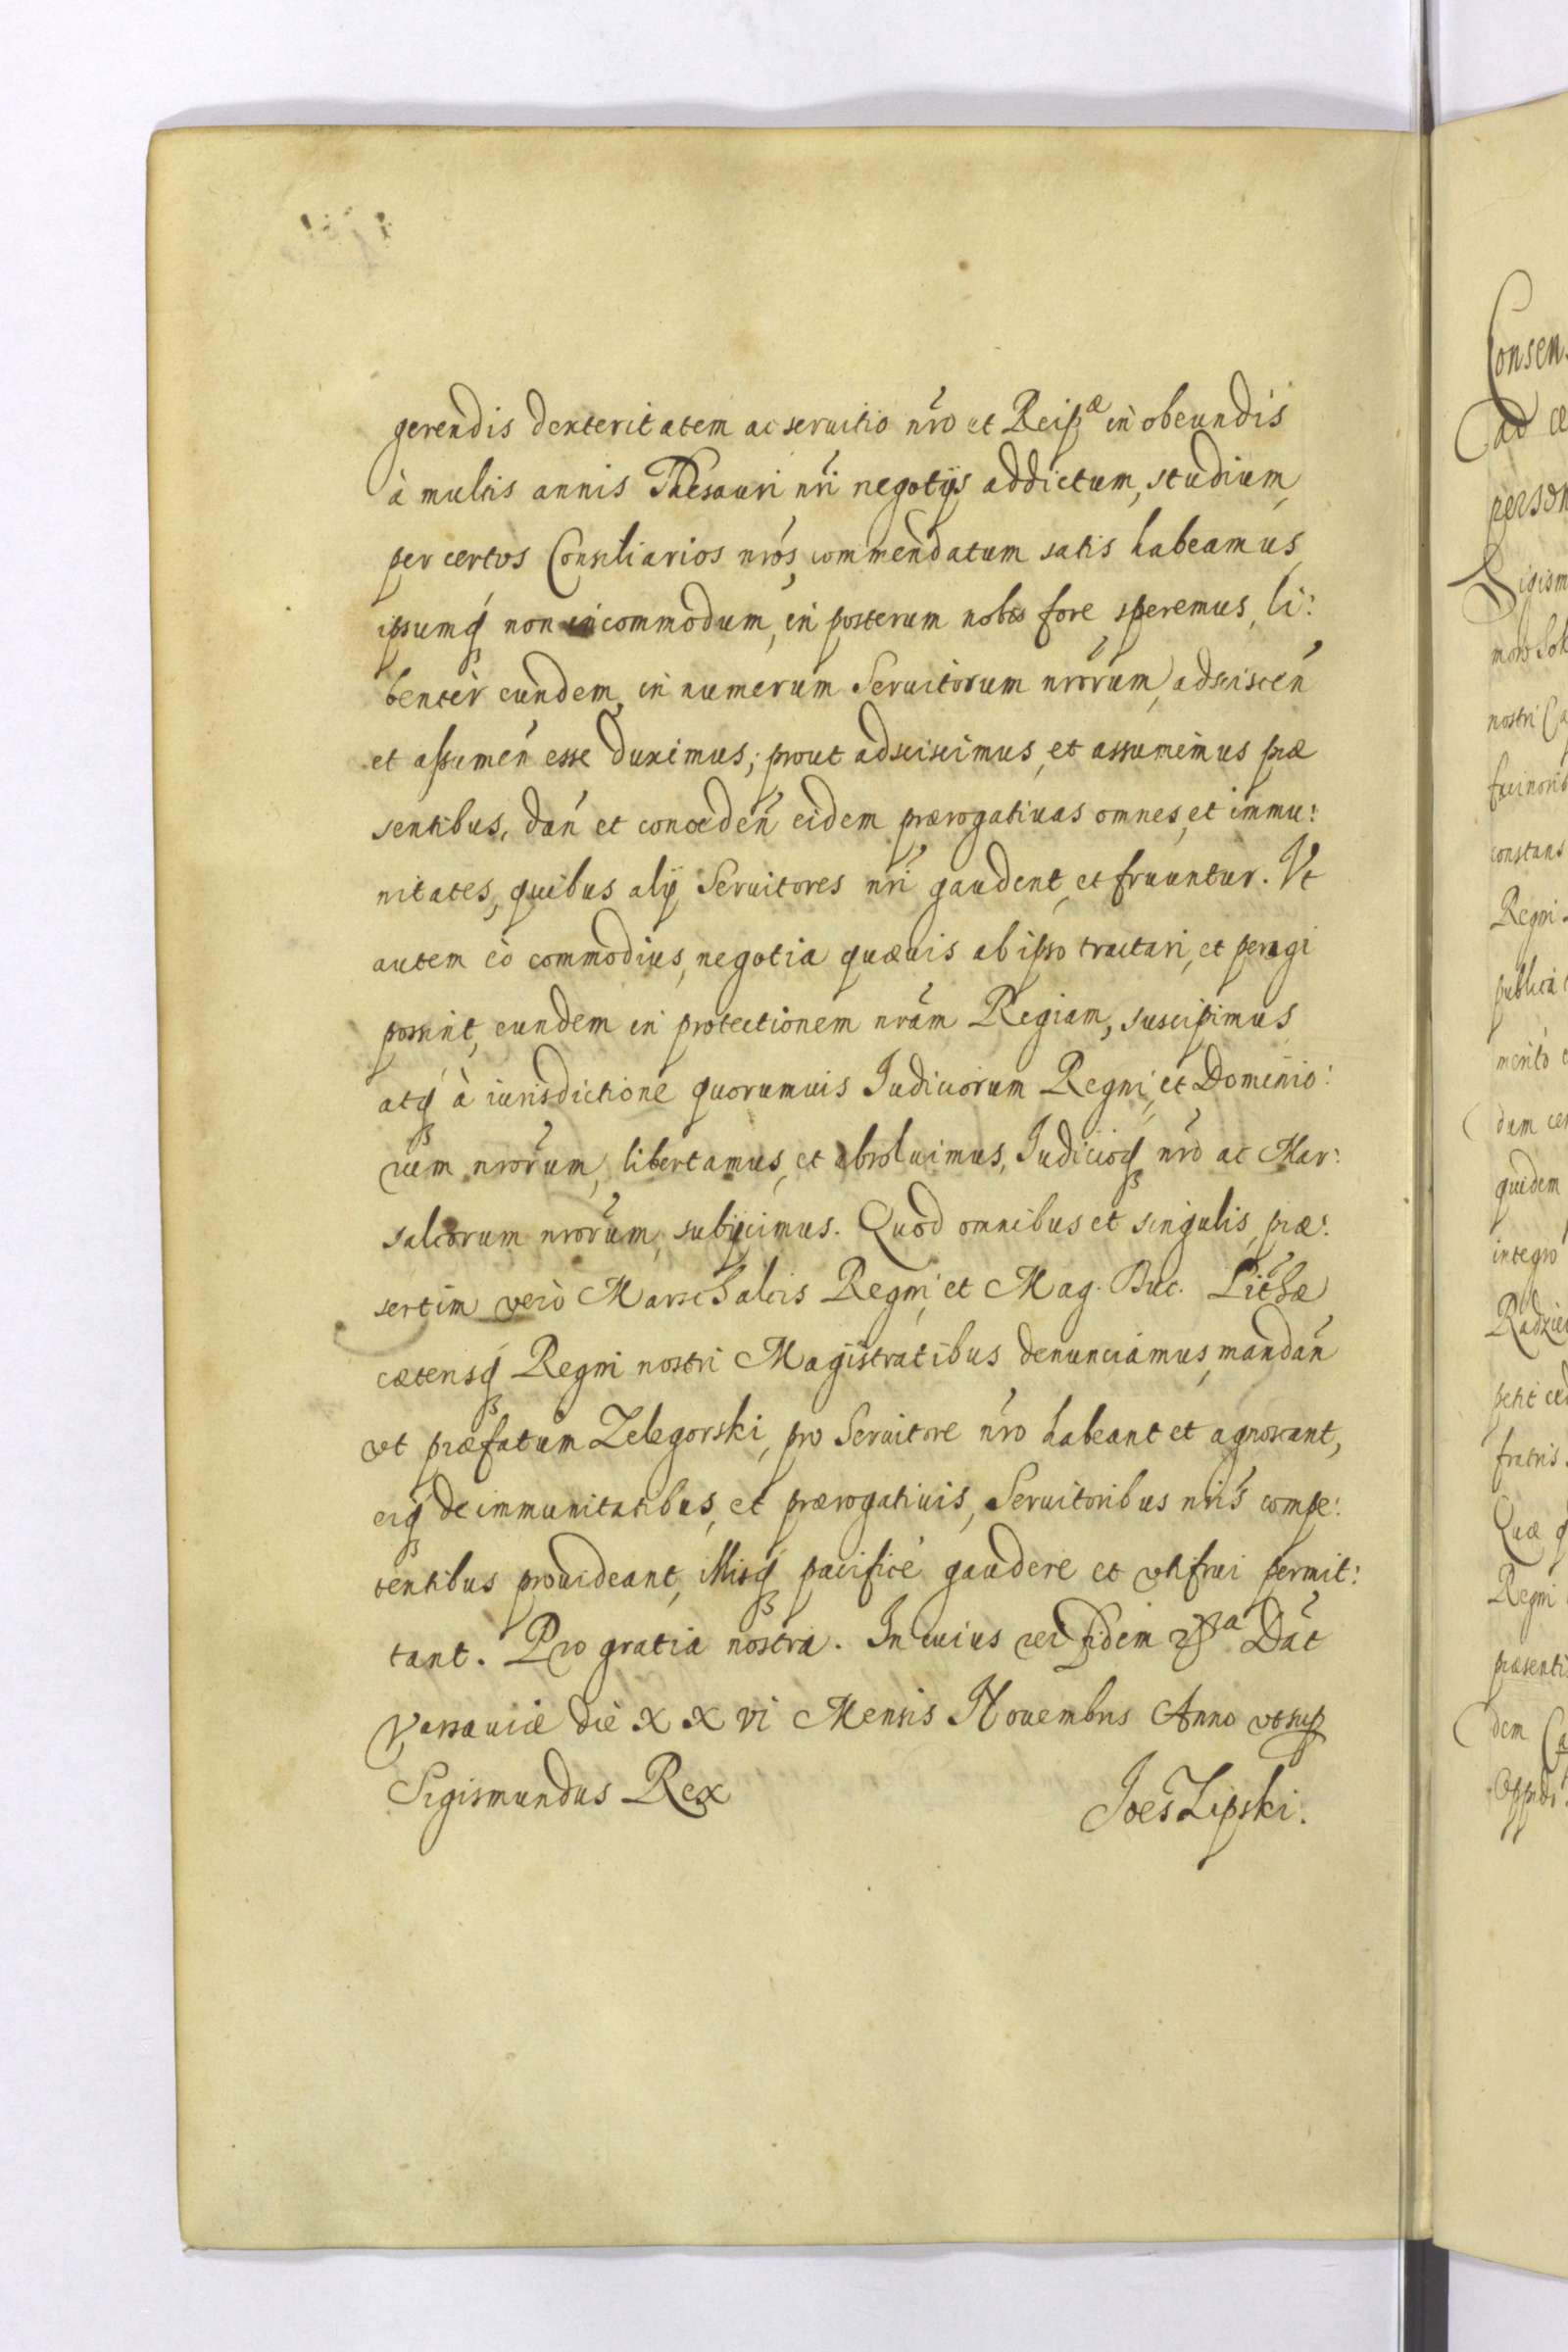 gerendis dexteritatem ac seruitio nr̃o et Reip^æ in obeundis
à multis annis Thesauri nr̃i negotijs addictum, studium
per certos Consiliarios nr̃os, commendatum satis habeamus
ipsumq̃ non incommodum, in posterum nobis fore speremus, li:
bentèr eundem, in numerum Seruitorum nr̃orum, adsciscen̄
et assumen̄ esse duximus; prout adsciscimus, et assumimus præ
sentibus, dan̄ et conceden̄ eidem prærogatiuas omnes, et immu:
nitates, quibus alij Seruitores nr̃i gaudent, et fruuntur. Vt
autem eò commodius, negotia quæuis ab ipso tractari, et peragi
possint, eundem in protectionem nr̃am Regiam, suscipimus
atq̃ à iurisdictione quorumuis Iudiciorum Regni, et Dominio:
rum nr̃orum, libertamus, et absoluimus, Iudicioq̃ nr̃o ac Mar:
salcorum nr̃orum, subijcimus. Quod omnibus et singulis, præ:
sertim verò Marschalcis Regni, et Mag. Duc. Lithæ
cæterisq̃ Regni nostri Magistratibus denunciamus, mandan̄
vt præfatum Zelegorski, pro Seruitore nr̃o habeant et agnoscant,
eiq̃ de immunitatibus, et prærogatiuis, Seruitoribus nr̃is compe:
tentibus prouideant, illisq̃ pacificè gaudere et vtifrui permit:
tant. Pro gratia nostra. In cuius rei fidem Dat̃
Varsauiæ die XXVI Mensis Nouembris Anno vt sup
Sigismundus Rex
Joes Lipski.
Consen
Cad
person
Sigism
nostri Ca
facinorib
constans
Regni
publica
meritò
dam cer
quidem
integro
Radzie
petit
fratris
Quæ q
Regni
præsenti
dem Ca